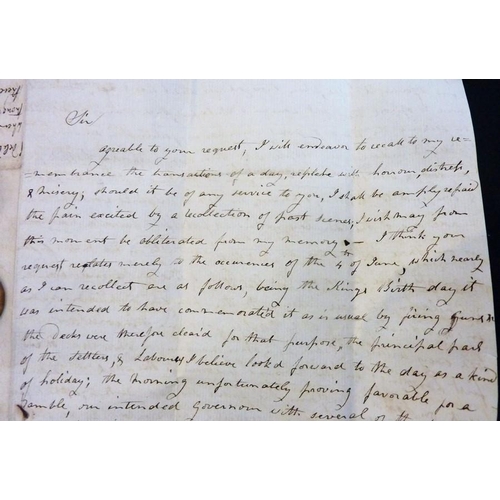 Sir
agreable to your request, I will endeavor to recall to my re=
=membrance the transactions of a day, replete with horrour, distress,
& misery; should it be of any service to you, I shall be amply repaid
the pain excited by a recollection of past scenes, I wish may from
this moment be obliterated from my memory — I think your
request relates merely to the occurences of the 4th of June, which nearly
as I can recollect are as follows, being the Kings Birth day it
was intended to have commemorated it as is usual by firing Guns &c
the decks were therefore clear'd for that purpose, the principal part
of the settlers, & Labourers I believe look'd forward to the day as a kind
of holiday; the morning unfortunately proving favorable for a
ramble, our intended Governour with several of